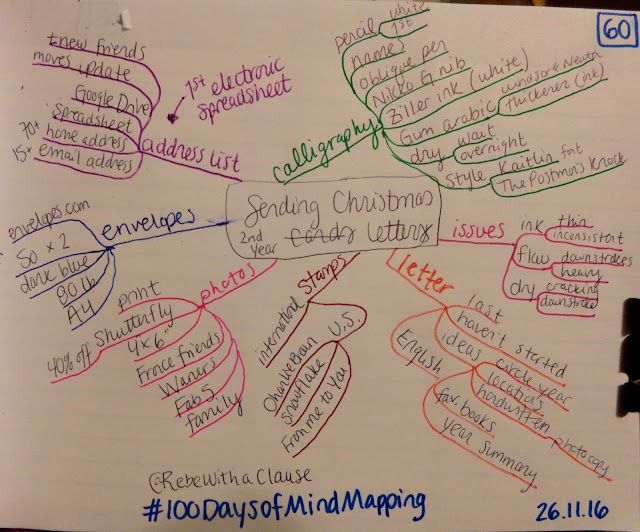 60
+new friends
moves update
Google Drive
spreadsheet
70+ home address
15+ email address
1st electronic
spreadsheet
address list
calligraphy
pencil white
1st
names
oblique pen
Nikko G nib
Ziller ink (white)
Gum arabic Windsor & Newton
thickener (ink)
dry wait
overnight
style Kaitlin font
The Postman's Knock
Sending Christmas
2nd
year cards letters
envelopes
envelopes.com
50 x 2
dark blue
80 lb
A4
issues
ink thin
inconsistent
flow downstrokes
heavy
dry cracking
downstroke
photos
print
Shutterfly
40% off
4x6"
France friends
Fab 5
family
stamps
international
U.S.
Charlie Brown
snowflake
From me to You
letter
last
haven't started
ideas circle year
locations
handwritten
photocopy
English
fav. books
year summary
@RebeWithaClause
#100DaysofMindMapping
26.11.16